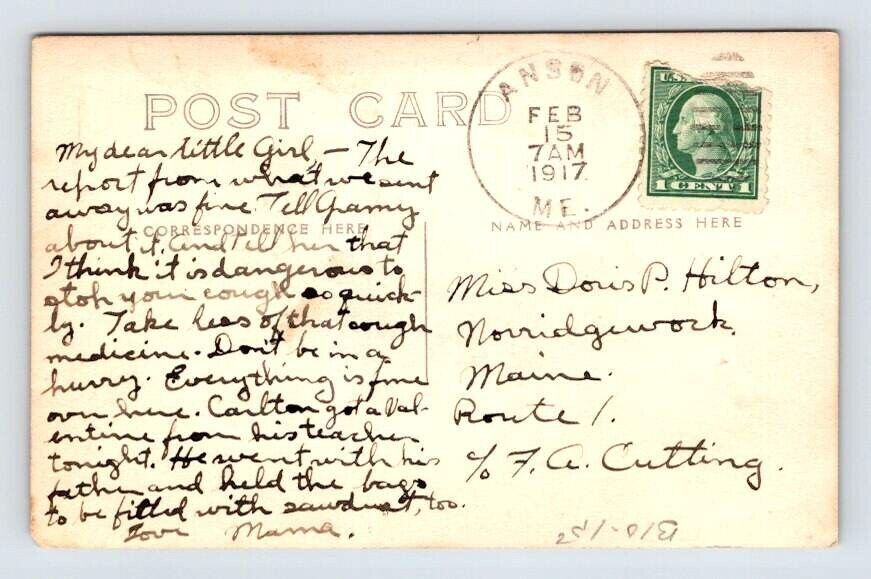 POST CARD
ANSON
FEB
15
7 AM
1917
ME.
1 CENT 1
CORRESPONDENCE HERE
NAME AND ADDRESS HERE
My dear little Girl, — The
report from what we sent
away was fine. Tell Gramy
about it, and tell her that
I think it is dangerous to
stop your cough so quick-
ly. Take less of that cough
medicine. Don't be in a
hurry. Everything is fine
over here. Carlton got a Val-
entine from his teacher
tonight. He went with his
father and held the bags
to be filled with sawdust, too.
Love Mama.
Miss Doris P. Hilton,
Norridgewock,
Maine.
Route 1.
c/o F. A. Cutting.